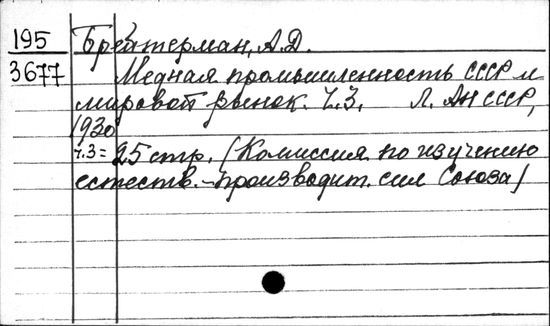 195 Брейтерман, А.Д.
3677 Медная промышленность СССР и
мировой рынок. Ч.3. Л. АН СССР,
1930
ч.3 = 25 стр. (Комиссия по изучению
естеств.-производит. сил Союза)